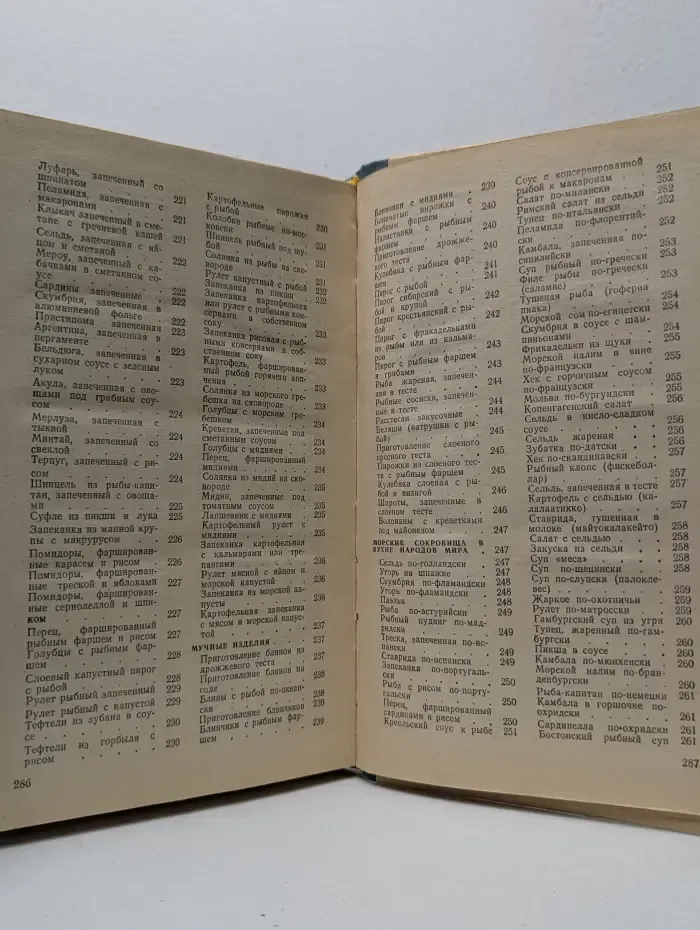 Луфарь, запеченный со
шпинатом . . . . 221
Пеламида, запеченная с
макаронами . . . . 221
Клыкач запеченный в сме-
тане с гречневой кашей 221
Сельдь, запеченная с яй-
цом и сметаной . . . 222
Мероу, запеченный с ка-
бачками в сметанном со-
усе . . . . 222
Сардины запеченные . . 222
Скумбрия, запеченная в
алюминиевой фольге . 222
Пристипома запеченная 223
Аргентина, запеченная в
пергаменте . . . . 223
Бельдюга, запеченная в
сухарном соусе с зеленым
луком . . . . 223
Акула, запеченная с ово-
щами под грибным соу-
сом . . . . 224
Мерлуза, запеченная с
тыквой . . . . 224
Минтай, запеченный со
свеклой . . . . 224
Терпуг, запеченный с ри-
сом . . . . 224
Шницель из рыбы-капи-
тан, запеченный с овоща-
ми . . . . 225
Суфле из пикши и лука 225
Запеканка из манной кру-
пы с макрурусом . . 226
Помидоры, фарширован-
ные карасем и рисом . 226
Помидоры, фарширован-
ные треской и яблоками 226
Помидоры, фарширован-
ные сериолеллой и шпи-
ком . . . . 227
Перец, фаршированный
рыбным фаршем и рисом 227
Голубцы с рыбным фар-
шем . . . . 228
Слоеный капустный пирог
с рыбой . . . . 228
Рулет рыбный запеченный 229
Рулет рыбный с капустой 229
Тефтели из зубана в соу-
се . . . . 230
Тефтели из горбыля с
рисом . . . . 230
286
Картофельные пирожки
с рыбой . . . . 230
Колобки рыбные по-мос-
ковски . . . . 231
Шницель рыбный под шу-
бой . . . . 231
Солянка из рыбы на ско-
вороде . . . . 231
Рулет капустный с рыбой 231
Запеканка из пикши . 232
Запеканка картофельная
или рулет с рыбными кон-
сервами в собственном
соку . . . . 232
Запеканка рисовая с рыб-
ными консервами в соб-
ственном соку . . . 233
Картофель, фарширован-
ный рыбой горячего коп-
чения . . . . 233
Солянка из морского гре-
бешка на сковороде . 233
Голубцы с морским гре-
бешком . . . . 233
Креветки, запеченные под
сметанным соусом . . 234
Голубцы с мидиями . . 234
Перец, фаршированный
мидиями . . . . 234
Солянка из мидий на ско-
вороде . . . . 234
Мидии, запеченные под
томатным соусом . . 235
Лапшевник с мидиями . 235
Картофельный рулет с
мидиями . . . . 235
Запеканка картофельная
с кальмарами или тре-
пангами . . . . 236
Рулет мясной с яйцом и
морской капустой . . 236
Запеканка из морской ка-
пусты . . . . 236
Картофельная запеканка
с мясом и морской капус-
той . . . . 237
МУЧНЫЕ ИЗДЕЛИЯ . . 237
Приготовление блинов из
дрожжевого теста . . 237
Приготовление блинов на
соде . . . . 238
Блины с рыбой по-океан-
ски . . . . 238
Приготовление блинчиков 239
Блинчики с рыбным фар-
шем . . . . 239
Блинчики с мидиями . 239
Блинчатые пирожки с
рыбным фаршем . . 240
Налистники с рыбным
фаршем . . . . 240
Приготовление дрожже-
вого теста . . . . 240
Кулебяка с рыбным фар-
шем . . . . 241
Пирог с рыбой . . . 241
Пирог сибирский с ры-
бой и крупой . . . 242
Пирог крестьянский с ры-
бой . . . . 242
Пирог с фрикадельками
из рыбы или из кальма-
ров . . . . 243
Пирог с рыбным фаршем
и грибами . . . . 243
Рыба жареная, запечен-
ная в тесте . . . . 244
Рыбные сосиски, запечен-
ные в тесте . . . . 244
Расстегаи закусочные . 244
Беляши (ватрушки с ры-
бой) . . . . 245
Приготовление слоеного
пресного теста . . . 245
Пирожки из слоеного тес-
та с рыбным фаршем . 245
Кулебяка слоеная с ры-
бой и визигой . . . 246
Шароты, запеченные в
слоеном тесте . . . 246
Волованы с креветками
под майонезом . . . 247
МОРСКИЕ СОКРОВИЩА В
КУХНЕ НАРОДОВ МИРА . 247
Сельдь по-голландски . 247
Угорь на шпажке . . 247
Скумбрия по-фламандски 248
Угорь по-фламандски . 248
Паэлья . . . . 248
Рыба по-астурийски . . 249
Рыбный пудинг по-мад-
ридски . . . . 249
Треска, запеченная по-ис-
пански . . . . 249
Ставрида по-испански . 249
Запеканка по-португаль-
ски . . . . 250
Рыба с рисом по-порту-
гальски . . . . 250
Перец, фаршированный
сардинами и рисом . . 250
Креольский соус к рыбе 251
Соус с консервированной
рыбой к макаронам . . 251
Салат по-милански . . 252
Римский салат из сельди 252
Тунец по-итальянски . 252
Пеламида по-флорентий-
ски . . . . 252
Камбала, запеченная по-
сицилийски . . . . 253
Суп рыбный по-гречески 253
Филе рыбы по-гречески
(саламис) . . . . 253
Тушеная рыба (гоферна
пиака) . . . . 254
Морской сом по-египетски 254
Скумбрия в соусе с шам-
пиньонами . . . . 254
Фрикадельки из щуки . 254
Морской налим в вине
по-французски . . . 255
Хек с горчичным соусом
по-французски . . . 255
Мольва по-бургундски . 255
Копенгагенский салат . 256
Сельдь в кисло-сладком
соусе . . . . 256
Сельдь жареная . . 256
Зубатка по-датски . . 256
Хек по-скандинавски . 257
Рыбный клопс (фискебол-
лар) . . . . 257
Сельдь, запеченная в тесте 257
Картофель с сельдью (ка-
лалаатикко) . . . 257
Ставрида, тушенная в
молоке (майтокалакейто) 258
Салат с сельдью . . 258
Закуска из сельди . . 258
Суп «меса» . . . . 258
Суп по-щецински . . 258
Суп по-слупски (палокле-
вес) . . . . 259
Жаркое по-охотничьи . 259
Рулет по-матросски . . 259
Гамбургский суп из угря 260
Тунец, жаренный по-гам-
бургски . . . . 260
Пикша в соусе . . . 260
Камбала по-мюнхенски . 260
Морской налим по-бран-
денбургски . . . . 260
Рыба-капитан по-немецки 261
Камбала в горшочке по-
охридски . . . . 261
Сардинелла по-охридски 261
Бостонский рыбный суп 261
287